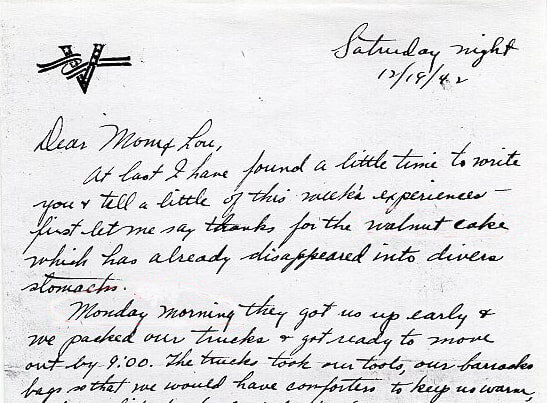 Saturday night
12/19/42
Dear Mom & Lou,
At last I have found a little time to write
you & tell a little of this week's experiences –
first let me say thanks for the walnut cake
which has already disappeared into divers
stomachs.
Monday morning they got us up early &
we packed our trucks & got ready to move
out by 9:00. The trucks took our tools, our barracks
bags so that we would have comforters to keep us warm,